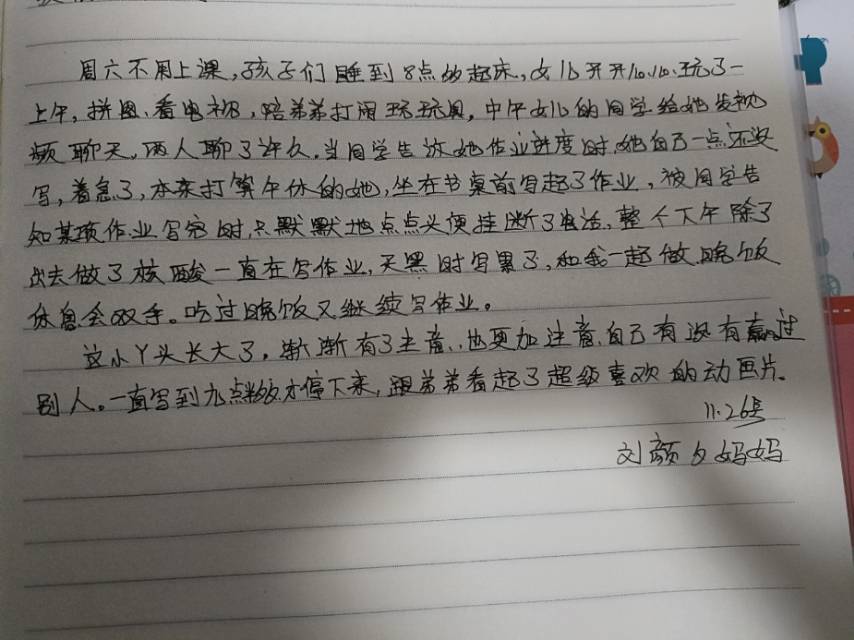 周六不用上课,孩子们睡到8点多起床,女儿开开心心玩了一
上午,拼图、看电视,陪弟弟打闹玩玩具,中午女儿的同学给她发视
频聊天,两人聊了许久,当同学告诉她作业进度时,她自己一点还没
写,着急了,本来打算午休的她,坐在书桌前写起了作业,被同学告
知某项作业写完时,只默默地点点头便挂断了电话,整个下午除了
出去做了核酸一直在写作业,天黑时写累了,和我一起做晚饭
休息会双手。吃过晚饭又继续写作业。
这小丫头长大了,渐渐有了主意,也更加注意自己有没有赢过
别人。一直写到九点半才停下来,跟弟弟看起了超级喜欢的动画片。
11.26号
刘颜夕妈妈